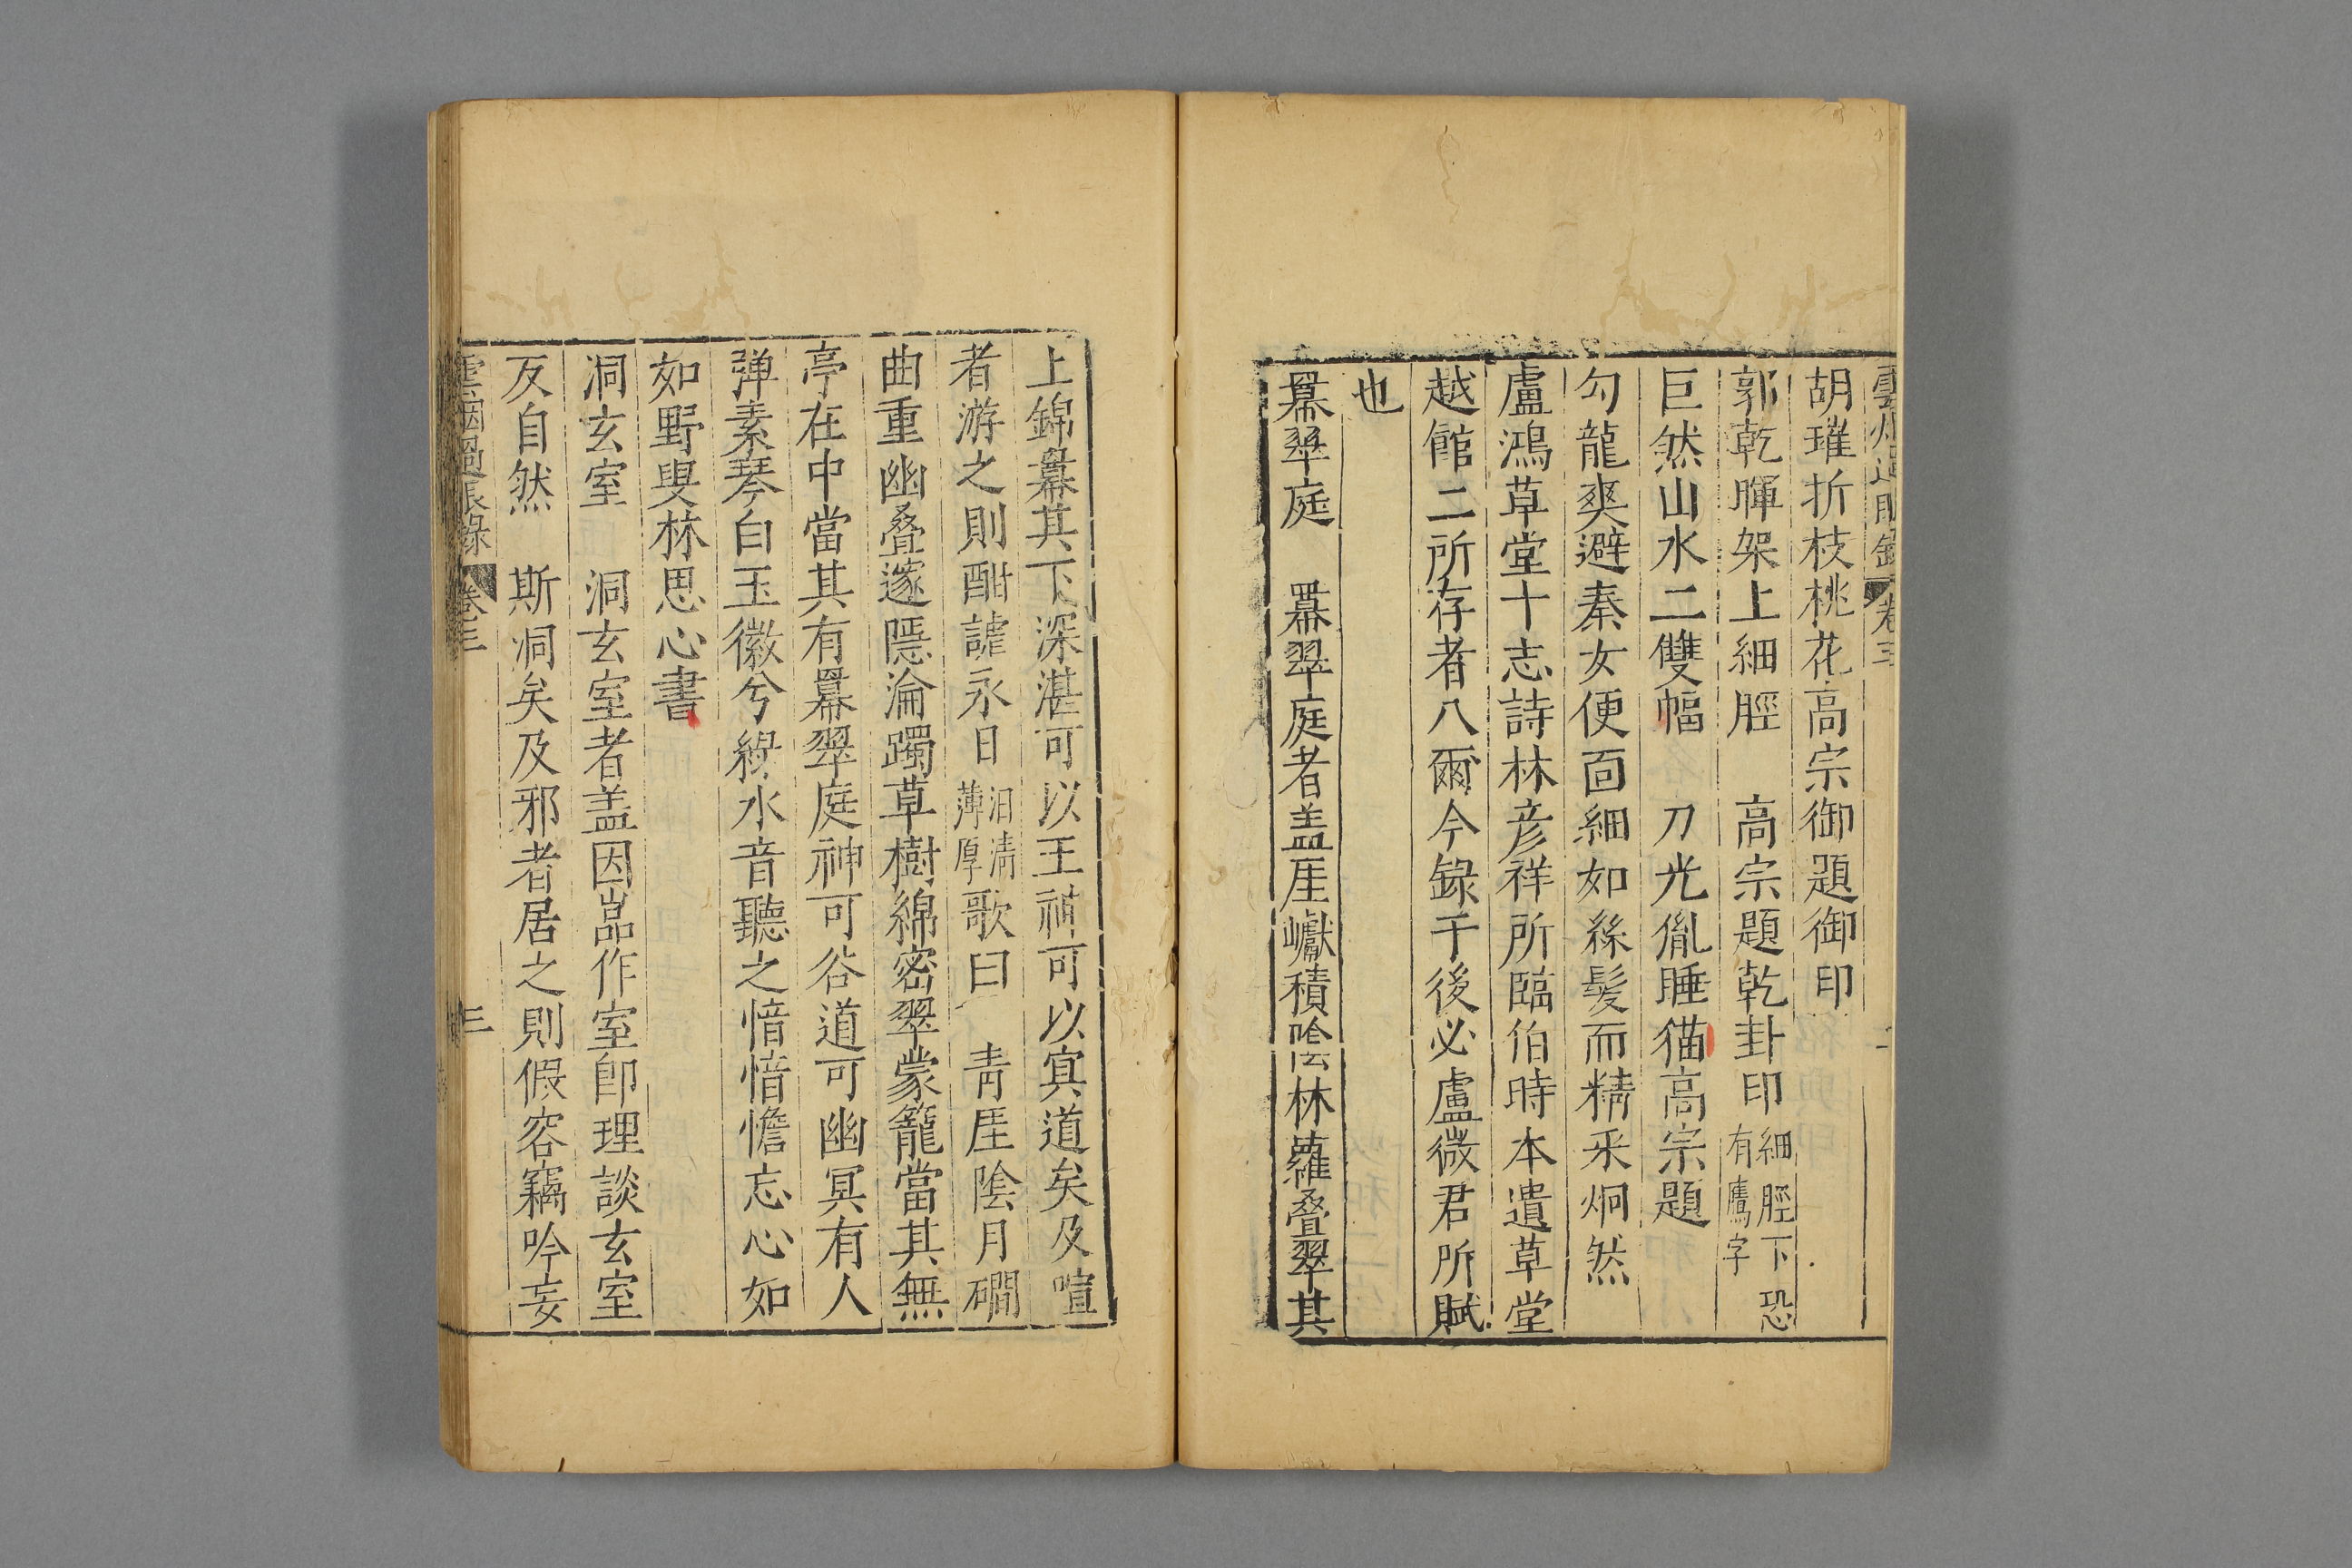 胡瓘折枝桃花高宗御題御印
郭乾暉架上細脛　高宗題乾卦印細脛下恐有鷹字
巨然山水二雙幅　刀光胤睡猫高宗題
勾龍爽避秦女便面細如絲髮而精采炯然
盧鴻草堂十志詩林彦祥所臨伯時本遺草堂
越館二所存者八爾今録于後必盧微君所賦
也
羃翠庭　羃翠庭者盖厓巘積陰林蘿叠翠其
上錦羃其下深湛可以王神可以寘道矣及喧
者游之則酣謔永日汨清薄厚歌曰　青厓陰月磵
曲重幽叠邃隱淪躅草樹綿密翠蒙籠當其無
亭在中當其有羃翠庭神可谷道可幽冥有人
弹素琴白玉徽兮綠水音聽之愔愔憺忘心如
如野叟林思心書
洞玄室　洞玄室者盖因嵓作室卽理談玄室
反自然　斯洞矣及邪者居之則假容竊吟妄
雲烟過眼錄　卷三　三